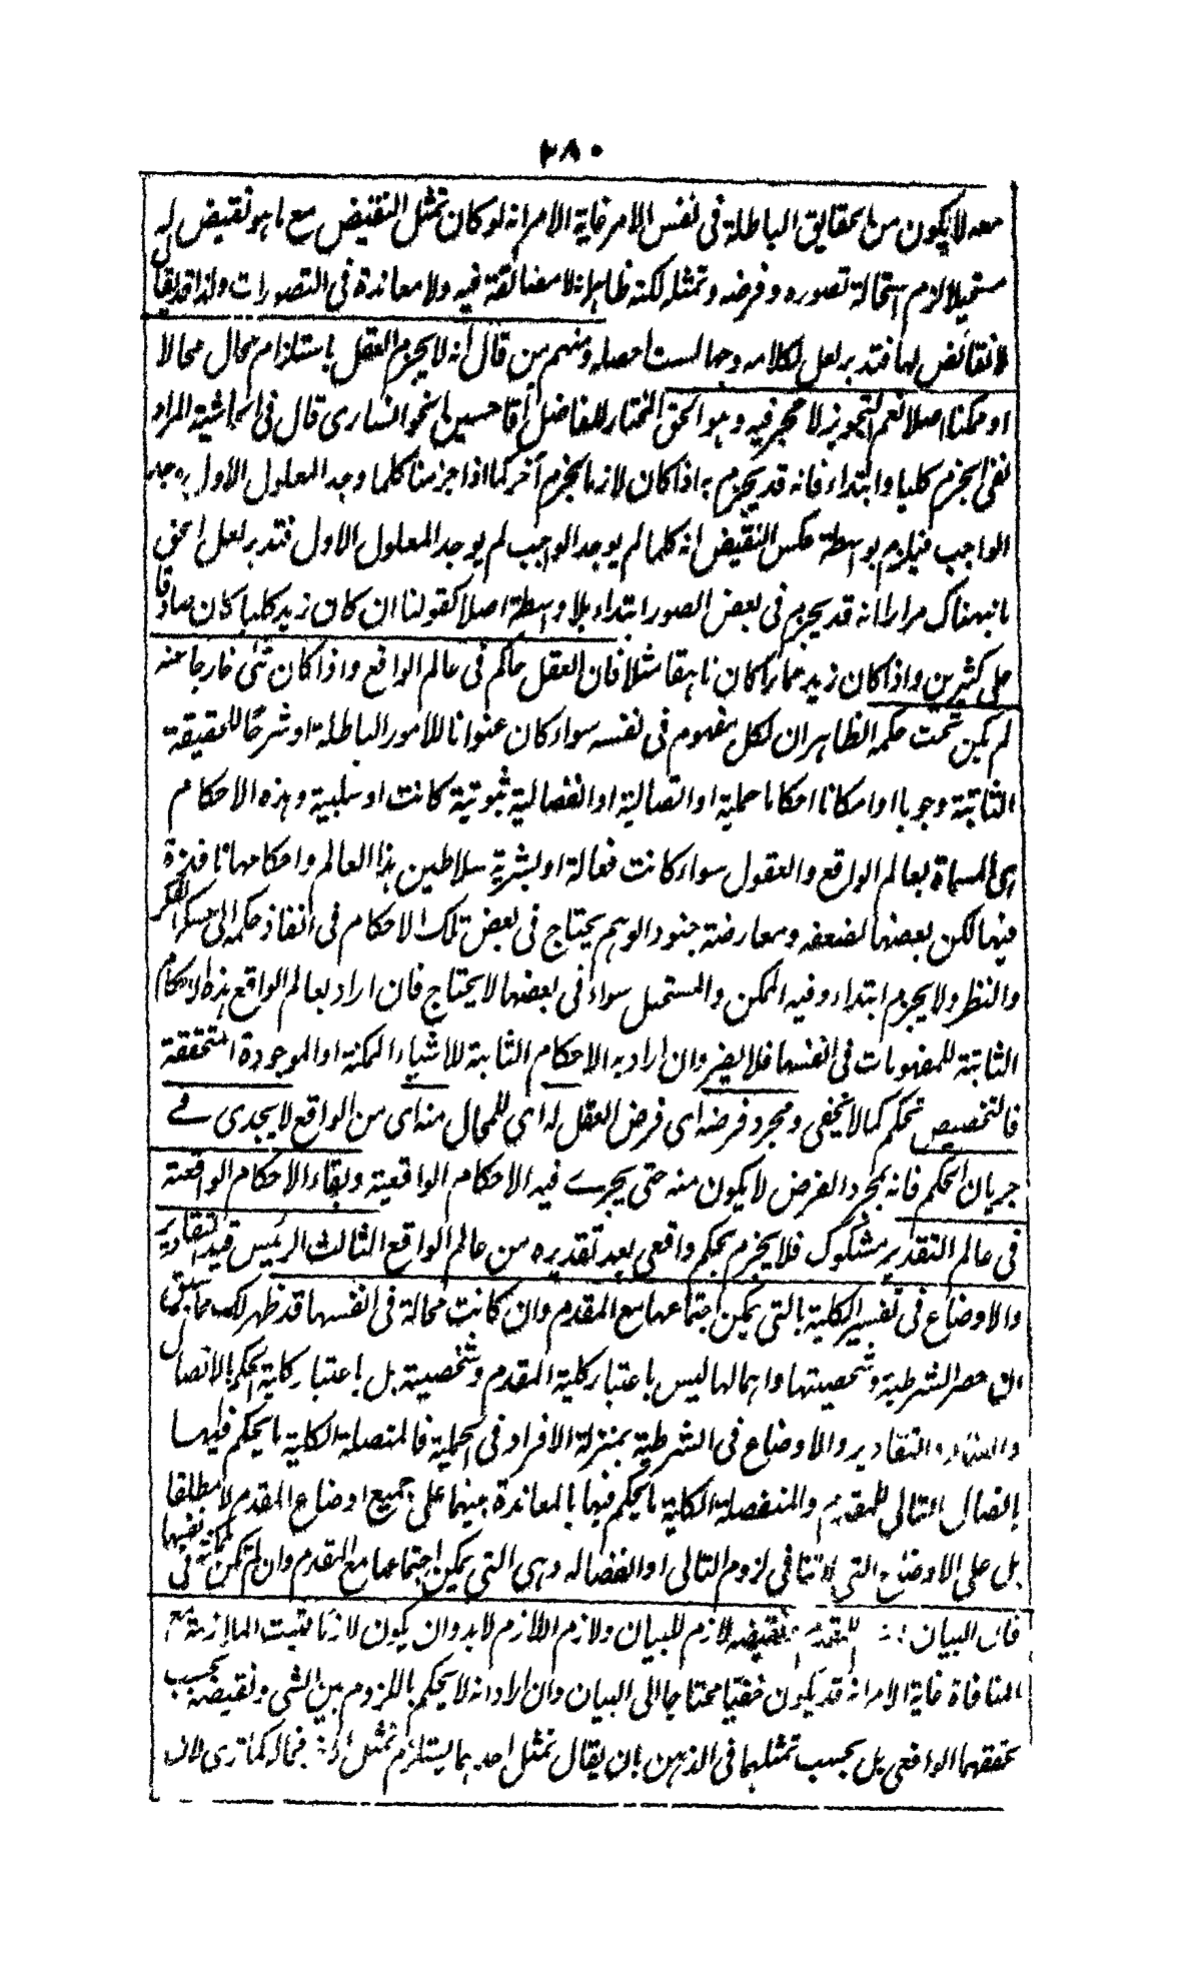 ٢٨٠
معه لا يكون من الحقايق الباطلة فى نفس الامر غاية الامر انه لو كان تمثل النقيض مع ما هو نقيض له
مستحيلا لزم استحالة تصوره و فرضه و تمثله لكنه ظاهر انه لا مضائقة فيه ولا معاندة فى التصورات ولذا قد يقال
لا نقائض لها فتدبر لعل لكلامه وجها لست احصله ومنهم من قال انه لا يجزم العقل باستلزام محال محالا
او ممكنا اصلا نعم التجويز لا حجر فيه وهو الحق المختار للفاضل آقا حسين الخوانسارى قال فى الحاشية المراد
نفى الجزم كليا وابتداء فانه قد يجزم به اذا كان لازما لجزم آخر كما اذا جزمنا كلما وجد المعلول الاول وجد
الواجب فيلزم بواسطة عكس النقيض انه كلما لم يوجد الواجب لم يوجد المعلول الاول فتدبر لعل الحق
ما نبهناك مرارا انه قد يجزم فى بعض الصور ابتداء بلا واسطة اصلا كقولنا ان كان زيد كليا كان صادقا
على كثيرين واذا كان زيد حمارا كان ناهقا مثلا فان العقل حاكم فى عالم الواقع واذا كان شئ خارجا عنه
لم يكن تحت حكمه الظاهر ان لكل مفهوم فى نفسه سواء كان عنوانا للامور الباطلة او شرحا للحقيقة
الثابتة وجوبا او امكانا احكاما حملية او اتصالية او انفصالية ثبوتية كانت او سلبية وهذه الاحكام
هى المسماة بعالم الواقع والعقول سواء كانت فعالة او بشرية سلاطين هذا العالم واحكامها نافذة
فيها لكن بعضها لضعفه ومعارضة جنود الوهم يحتاج فى بعض تلك الاحكام فى انفاذ حكمه الى عسكر الفكر
والنظر ولا يجزم ابتداء وفيه الممكن والمستحيل سواء فى بعضها لا يحتاج فان اراد بعالم الواقع هذه الاحكام
الثابتة للمفهومات فى انفسها فلا يضر وان اراد به الاحكام الثابتة للاشياء الممكنة او الموجودة المتحققة
فالتخصيص تحكم كما لا يخفى ومجرد فرضه اى فرض العقل له اى للمحال منه اى من الواقع لا يجدى فے
جريان الحكم فانه بمجرد الفرض لا يكون منه حتى يجرے فيه الاحكام الواقعية وبقاء الاحكام الواقعية
فى عالم التقدير مشكوك فلا يجزم بحكم واقعى بعد تقديره من عالم الواقع الثالث الرئيس قيد التقادير
والاوضاع فى تفسير الكلية بالتى يمكن اجتماعها مع المقدم وان كانت محالة فى انفسها قد ظهر لك مما سبق
ان حصر الشرطية وشخصيتها واهمالها ليس باعتبار كلية المقدم وشخصيته بل باعتبار كلية الحكم بالاتصال
والعناد والتقادير والاوضاع فى الشرطية بمنزلة الافراد فى الحملية فالمتصلة الكلية ما يحكم فيها
باتصال التالى للمقدم والمنفصلة الكلية ما يحكم فيها بالمعاندة بينهما على جميع اوضاع المقدم لا مطلقا
بل على الاوضاع التى لا تنافى لزوم التالى او انفصاله وهى التى يمكن اجتماعها مع المقدم وان لم تكن ممكنة فى نفسها
فان البيان للمقدم نقيضه لازم للبيان ولازم اللازم لا بد وان يكون لازما فثبت الملازمة مع
المنافاة غاية الامر انه قد يكون خفيا محتاجا الى البيان وان اراد انه لا يحكم باللزوم بين الشئ ونقيضه بحسب
تحققهما الواقعى بل بحسب تمثلهما فى الذهن بان يقال تمثل احدهما يستلزم تمثل فحاله كما ترى لان